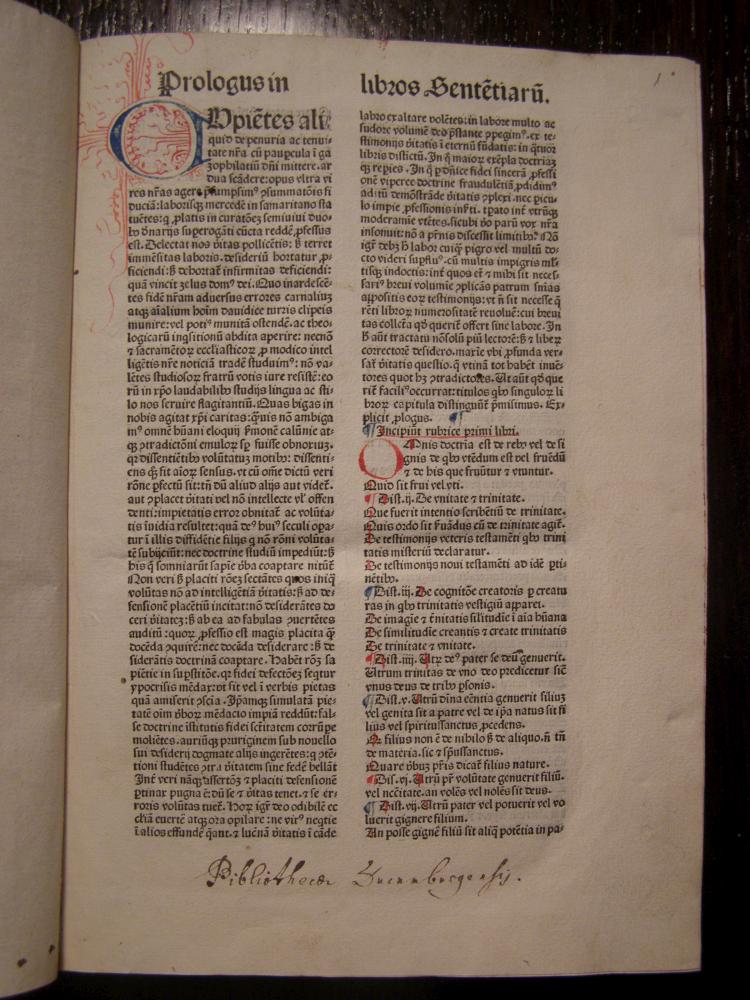 Prologus in libros Sentētiarū.
Cupiētes ali
quid de penuria ac tenui
tate nr̄a cū paupcula ī ga
zophilatiū dn̄i mittere. ar
dua scādere: opus vltra vi
res nr̄as agere p̄sumpsimꝰ ꝯsummatōis fi
duciā: laborisqꝫ mercedē in samaritano sta
tuētes: q ꝓlatis in curatōeꝫ semiuiui duo-
bꝰ dn̄arijs suꝑerogāti cūcta reddē ꝓfessus
est. Delectat nos v̄itas pollicētis: sꝫ terret
immēsitas laboris. desideriū hortatur ꝓ-
ficiendi: sꝫ dehortat infirmitas deficiendi:
quā vincit zelus domꝰ dei. Quo inardescē-
tes fidē nr̄am aduersus errores carnaliuꝫ
atqꝫ aīalium hoīm dauidice turris clipeis
munire: vel potiꝰ munitā ostendē. ac theo-
logicarū inq̄sitionū abdita aperire: necnō
⁊ sacramētoꝝ eccl̄iasticoꝝ ꝓ modico intel
ligētis nr̄e noticiā tradē studuimꝰ: nō va-
lētes studiosoꝝ fratrū votis iure resistē: eo
rū in xp̄o laudabilibꝰ studijs lingua ac sti-
lo nos seruire flagitantiū. Quas bigas in
nobis agitat xp̄i caritas: quis nō ambiga
mꝰ om̄ē hūani eloquij ẜmonē calūnie at-
qꝫ ꝯtradictōni emuloꝝ sꝑ fuisse obnoxiuꝫ.
q̄ dissentiētibꝰ volūtatuꝫ motibꝰ: dissenti-
ens q̄ꝫ fit aīoꝝ sensus. vt cū om̄e dictū veri
rōne ꝑfectū sit: tn̄ dū aliud alijs aut videt.
aut ꝯplacet v̄itati vel nō intellecte vl̓ offen
denti: impietatis erroꝝ obnitat̄ ac volūta-
tis īuidia resultet: quā deꝰ huiꝰ seculi oꝑa-
tur ī illis diffidētie filijs q nō rōni volūta-
tē subijciūt: nec doctrine studiū impēdūt: sꝫ
his q̄ somniarūt sapīe v̄ba coaptare nitūt̄
Non veri sꝫ placiti rōeꝫ sectātes quos iniq̄
volūtas nō ad intelligētiā v̄itatis: sꝫ ad de-
fensionē placētiū incitat: nō desiderātes do
ceri v̄itatē: sꝫ ab ea ad fabulas ꝯuertētes
auditū: quoꝝ ꝓfessio est magis placita q̄
docēda ꝯquirē: nec docēda desiderare: sꝫ de-
siderātis doctrinā coaptare. Habēt rōꝫ sa
pīetie in suꝑstitōe. qꝫ fidei defectōeꝫ sequr̄
ypocrisis mēdax: vt sit vel ī verbis pietas
quā amiserit ꝯscia. Ipāmqꝫ simulatā pie-
tatē oīm v̄boꝝ mēdacio impiā reddūt: fal-
se doctrine īstitutis fidei scītitatem corrūpe
molietes. auriūqꝫ pruriginem sub nouello
sui desiderij dogmate alijs ingerētes: q ꝯtē-
tioni studētes ꝯtra v̄itatem sine fedē bellāt
Int̄ veri nāqꝫ assertōꝫ ⁊ placiti defensionē
ꝑtinax pugna ē: dū se ⁊ v̄itas tenet. ⁊ se er-
roris volūtas tuet. Hoꝝ igr̄ deo odibilē ec
cl̄iā euertē atqꝫ ora opilare: ne virꝰ nēqtie
ī alios effundē q̄ant. ⁊ lucnā v̄itatis ī cāde
labro exaltare volētes: in labore multo ac
sudore volumē deo p̄stante ꝯpegimꝰ. ex te-
stimonijs v̄itatis ī eternū fūdatis: in q̄tuor
libris distictū. In q̄ maioꝝ exēpla doctrīaꝫ
qꝫ reꝑies. In q̄ ꝑ dn̄ice fidei sincerā ꝓfessi
onē vipereē doctrine fraudulētiā ꝓdidimꝰ
aditū demōstrāde v̄itatis ꝯplexi. nec picu-
lo impie ꝓfessionis inserti. tꝑato int̄ vtrūqꝫ
moderamie vtētes. sicubi vo̓ parū vox nr̄a
insonuit: nō a pr̄nis discessit limitibꝰ. Nō
igr̄ debꝫ h̄ labor cuiqꝫ pigro vel multū do-
cto videri suꝑfluꝰ. cū multis impigris ml̓-
tisqꝫ indoctis: int̄ quos et ⁊ mihi sit neces-
sariꝰ breui volumīe ꝯplicās patrum sn̄ias
apposītis eoꝝ testimonijs: vt n̄ sit necesse q̄
rēti libroꝝ numerositatē reuoluē: cui breui
tas collecta qd̓ querit̄ offert sine labore. In
h̄ aūt tractatu nōsolū piū lectorē: sꝫ ⁊ libeꝝ
correctorē desidero. marie vbi ꝓfunda ver-
sat̄ v̄itatis questio. q̄ vtinā tot habēt inuē-
tores quot hꝫ ꝯtradictores. Ut aūt qd̓que
rit̄ faciliꝰ occurrat: titulos q̄bꝰ singuloꝝ li
broꝝ capitula distinguūt̄ p̄misimus. Ex-
plicit ꝓlogus.
Incipiūt rubrice primi libri.
Omnis doctr̄ia est de rebꝰ vel de si
gnis de q̄bꝰ vtēdum est vel fruēdū
⁊ de his que fruūtur ⁊ vtuntur.
Quid sit frui vel vti.
Dist. ij. De vnitate ⁊ trinitate.
Que fuerit intentio scribētiū de trinitate.
Quis ordo sit ẜuādus cū de trinitate agit̄.
De testimonijs veteris testamēti q̄bꝰ trini
tatis misteriū declaratur.
De testimonijs noui testamēti ad idē ꝑti-
nētibꝰ.
Dist. iij. De cognitōe creatoris ꝑ creatu
ras in q̄bꝰ trinitatis vestigiū apparet.
De imagīe ⁊ t̄nitatis silitudīe ī aīa hūana
De similitudīe creantis ⁊ create trinitatis
De trinitate ⁊ vnitate.
Dist. iiij. Utrꝫ deꝰ pater se deū genuerit.
Utrum trinitas de vno deo predicetur sic̄
vnus deus de tribꝰ ꝑsonis.
Dist. v. Utrū diīna eēntia genuerit filiuꝫ
vel genita sit a patre vel de ip̄a natus sit fi
lius vel spiritussanctus ꝓcedens.
Qꝫ filius non ē de nihilo sꝫ de aliquo. n̄ tn̄
de materia. sic ⁊ sp̄ussanctus.
Quare v̄buꝫ pr̄is dicat̄ filius nature.
Dis. vj. Utrū pr̄ volūtate genuerit filiū.
vel necc̄itate. an volēs vel nolēs sit deus.
Dist. vij. Utrū pater vel potuerit vel vo
luerit gignere filium.
An posse gignē filiū sit aliq̄ potētia in pa-
Bibliothecæ